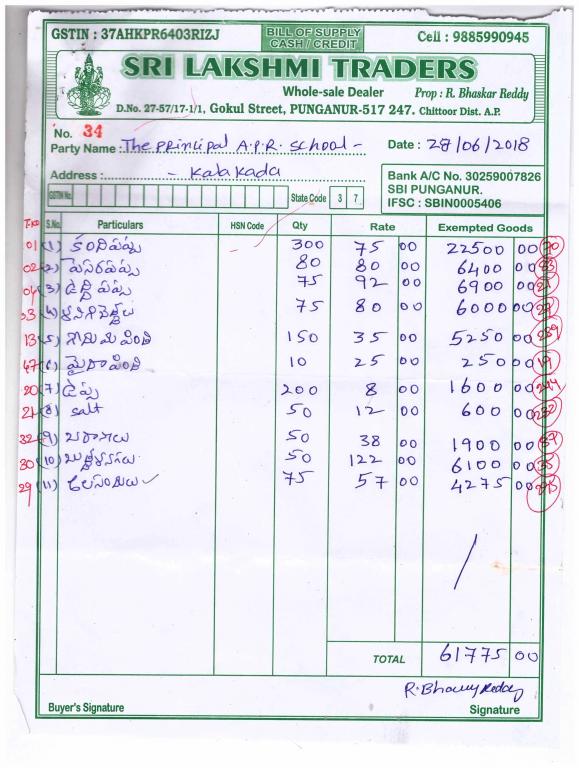 GSTIN : 37AHKPR6403RIZJ
BILL OF SUPPLY
CASH / CREDIT
Cell : 9885990945
SRI LAKSHMI TRADERS
Whole-sale Dealer
Prop : R. Bhaskar Reddy
D.No. 27-57/17-1/1, Gokul Street, PUNGANUR-517 247. Chittoor Dist. A.P.
No. 34
Party Name : The principal A.P.R. School - Date : 28/06/2018
Address : - Kalakada
Bank A/C No. 30259007826
SBI PUNGANUR.
IFSC : SBIN0005406
GSTIN No. State Code 3 7
S.No. Particulars HSN Code Qty Rate Exempted Goods
01 (1) కందిపప్పు 300 75 00 22500 00 20
02 (2) పెసరపప్పు 80 80 00 6400 00
04 (3) 75 92 00 6900 00
03 (4) 75 80 00 6000 00
13 (5) గోదుమపిండి 150 35 00 5250 00
47 (6) మైదాపిండి 10 25 00 250 00 19
20 (7) ఉప్పు 200 8 00 1600 00
21 (8) salt 50 12 00 600 00 232
32 (9) 50 38 00 1900 00
30 (10) 50 122 00 6100 00 35
29 (11) 75 57 00 4275 00
TOTAL 61775 00
Buyer's Signature
Signature